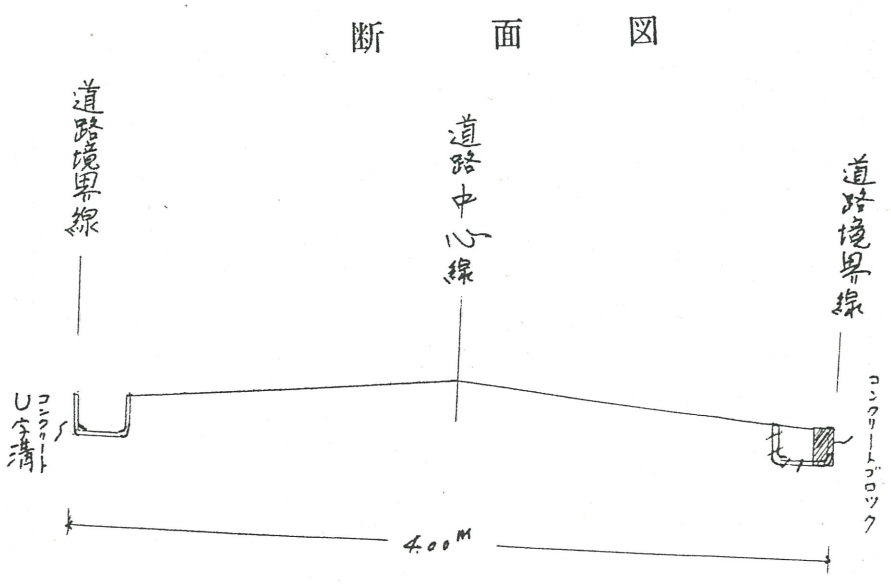 断面図
道路境界線
道路中心線
道路境界線
コンクリート
U字溝
コンクリートブロック
4.00m